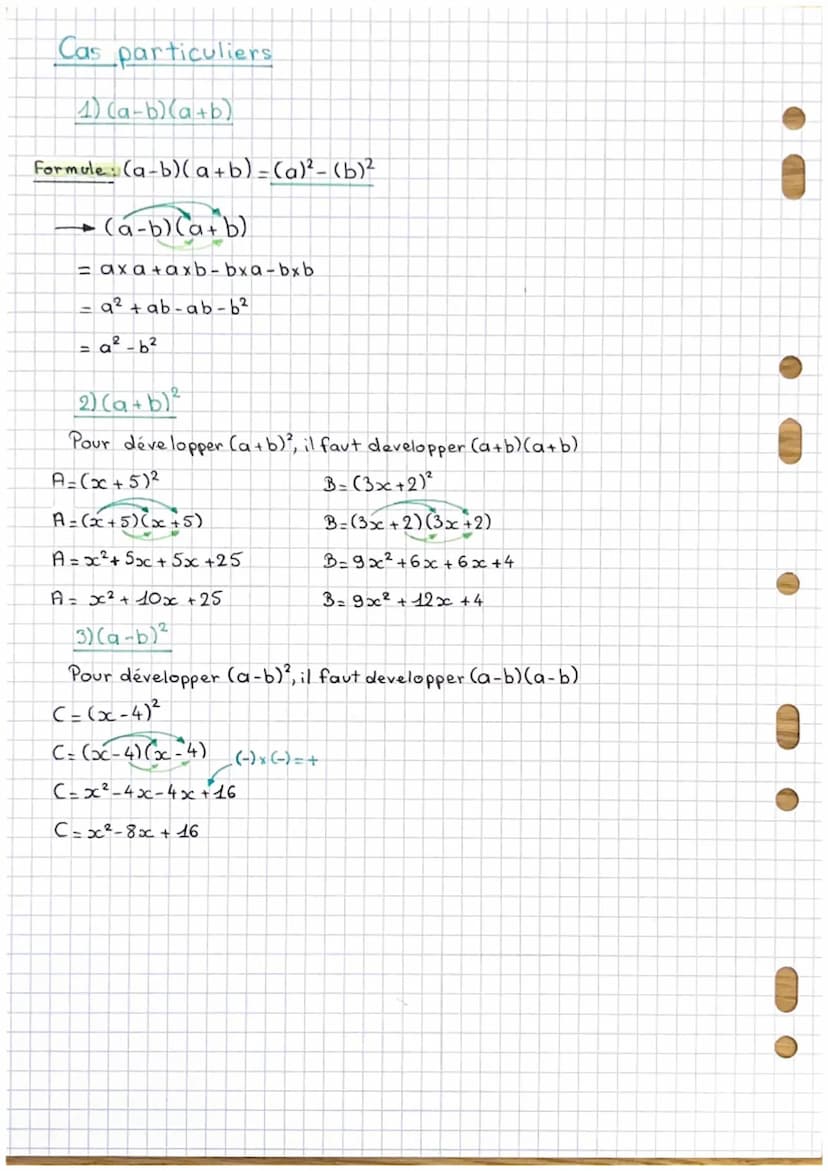 Cas particuliers
1) (a-b)(a+b)
Formule: (a-b)(a+b) = (a)² - (b)²
→ (a-b)(a+b)
= axa + axb - bxa - bxb
= a² + ab - ab - b²
= a² - b²
2) (a+b)²
Pour développer (a+b)², il faut developper (a+b)(a+b)
A = (x+5)²
A = (x+5)(x+5)
A = x² + 5x + 5x + 25
A = x² + 10x + 25
B = (3x+2)²
B = (3x+2)(3x+2)
B = 9x² + 6x + 6x + 4
B = 9x² + 12x + 4
3) (a-b)²
Pour développer (a-b)², il faut developper (a-b)(a-b)
C = (x-4)²
C = (x-4)(x-4)
(-) x (-) = +
C = x² - 4x - 4x + 16
C = x² - 8x + 16